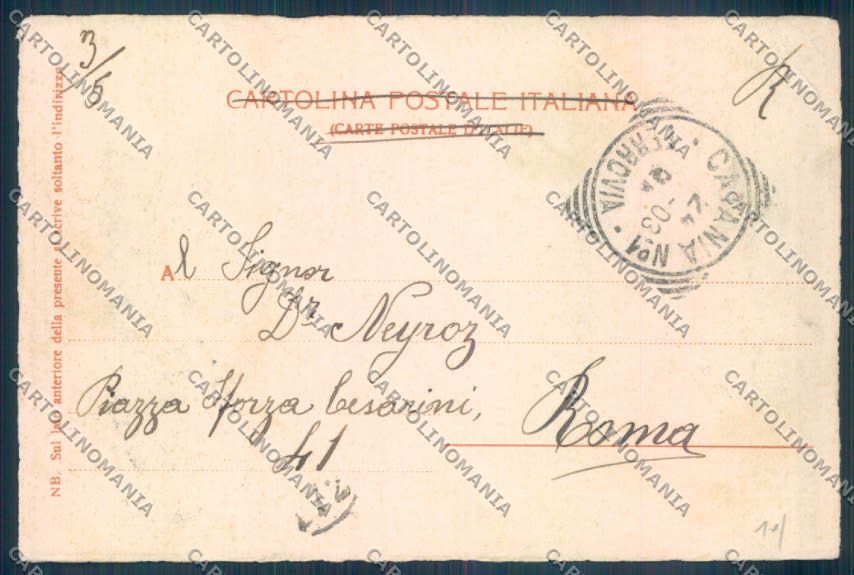 3/5
R
CARTOLINA POSTALE ITALIANA
(CARTE POSTALE D'ITALIE)
CATANIA Nº1 • FERROVIA •
24
-03
Al Signor
Dr Neyroz
Piazza Sforza Cesarini,
41
Roma
NB. Sul lato anteriore della presente si scrive soltanto l'indirizzo
CARTOLINOMANIA